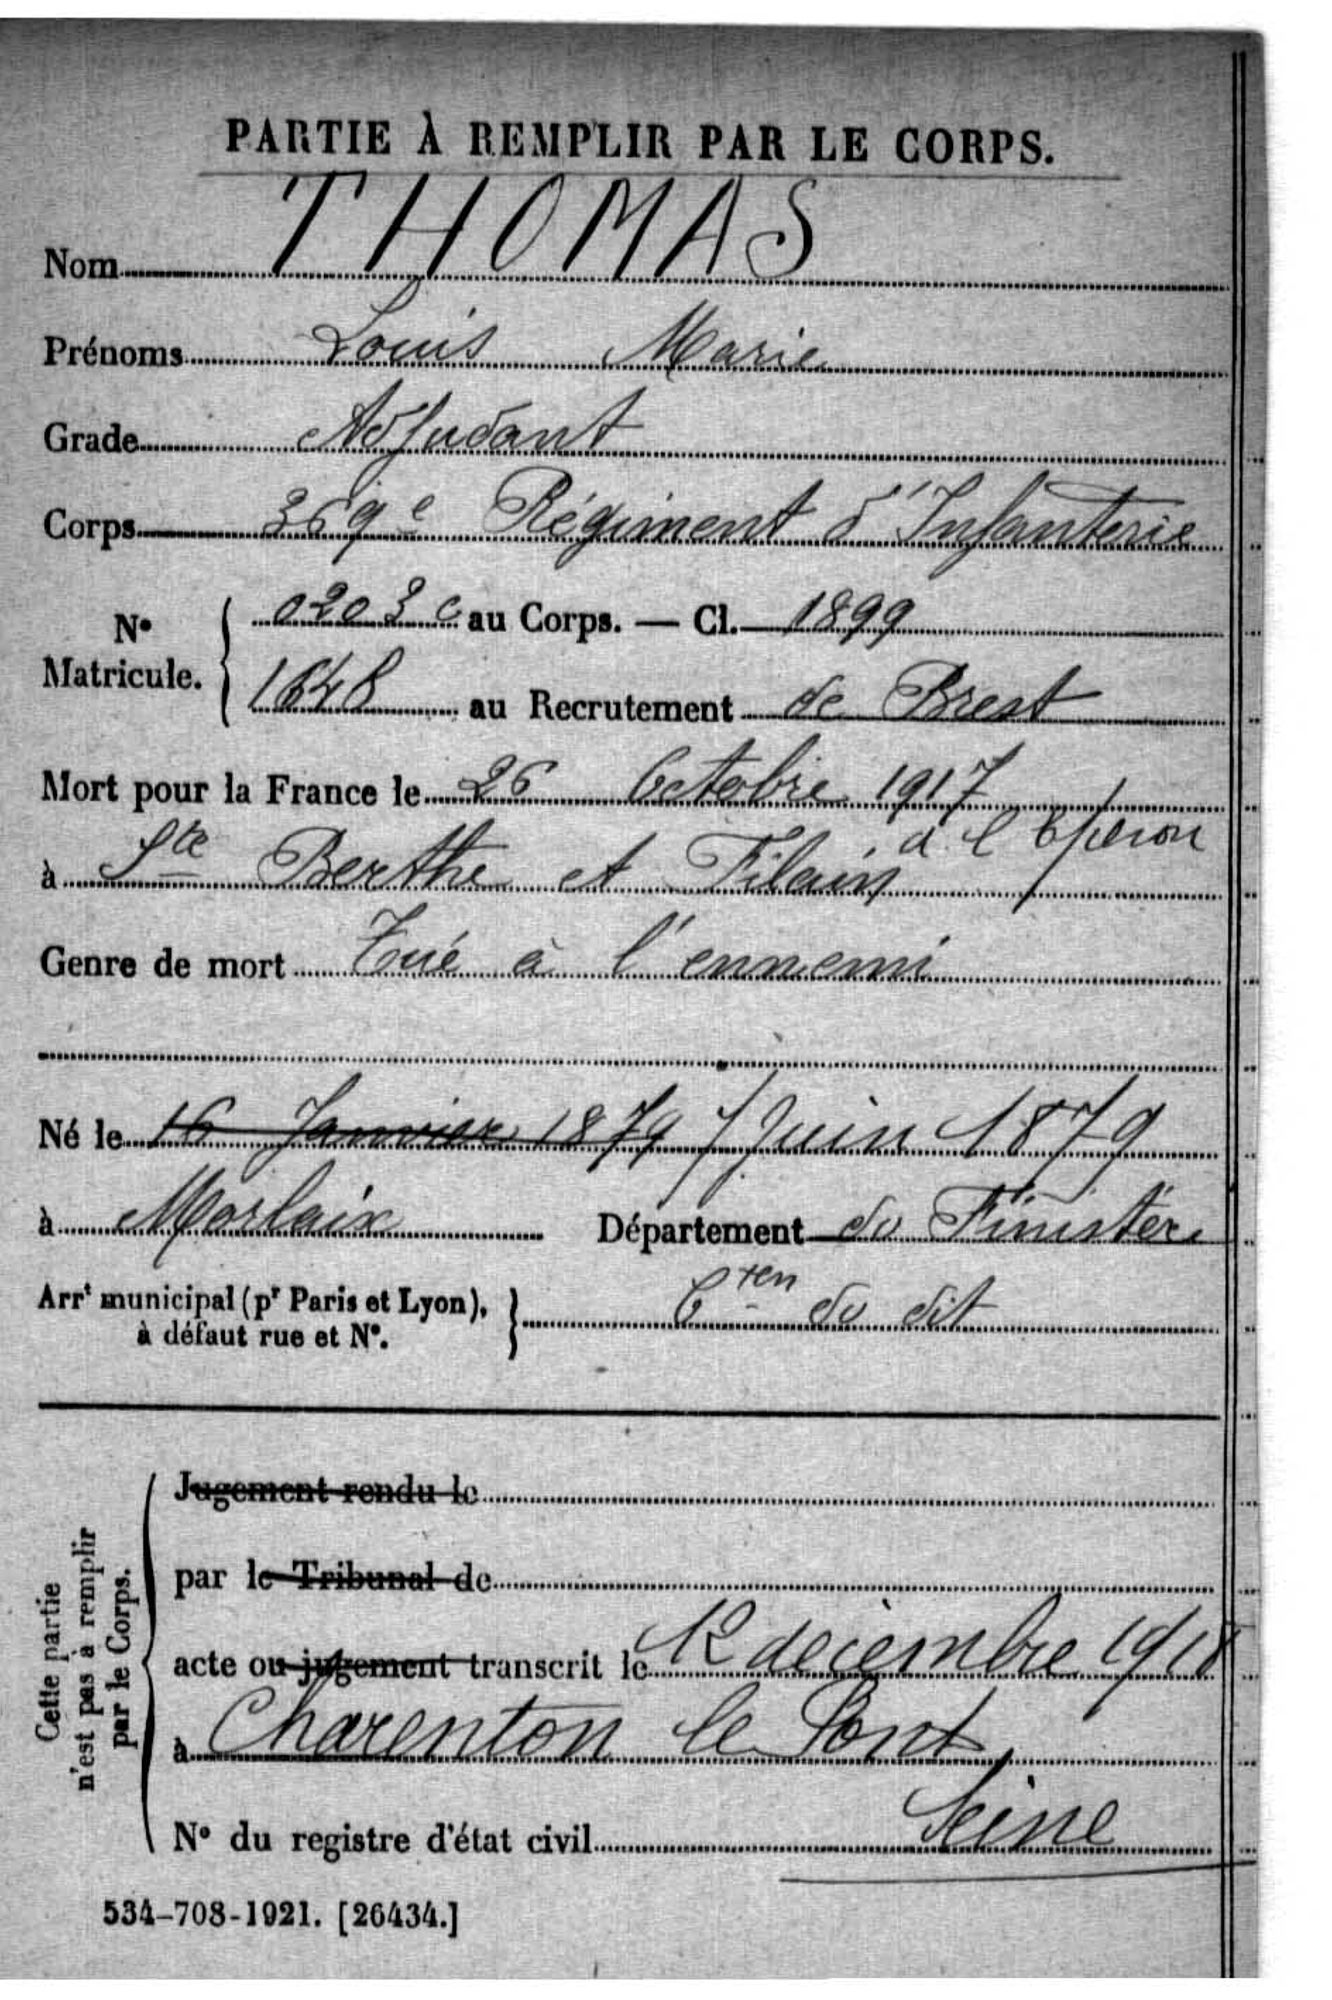 PARTIE À REMPLIR PAR LE CORPS.
Nom THOMAS
Prénoms Louis Marie
Grade Adjudant
Corps 369e Régiment d'Infanterie
No Matricule. { 0203 c au Corps. — Cl. 1899
1648 au Recrutement de Brest
Mort pour la France le 26 Octobre 1917
à Ste Berthe et Filain à l'Eperon
Genre de mort Tué à l'ennemi
Né le 16 Janvier 1879 7 Juin 1879
à Morlaix Département du Finistère
Arrt municipal (pr Paris et Lyon), à défaut rue et No. } Cten du dit
Cette partie n'est pas à remplir par le Corps.
Jugement rendu le
par le Tribunal de
acte ou jugement transcrit le 12 décembre 1918
à Charenton le Pont,
Seine
No du registre d'état civil
534-708-1921. [26434.]